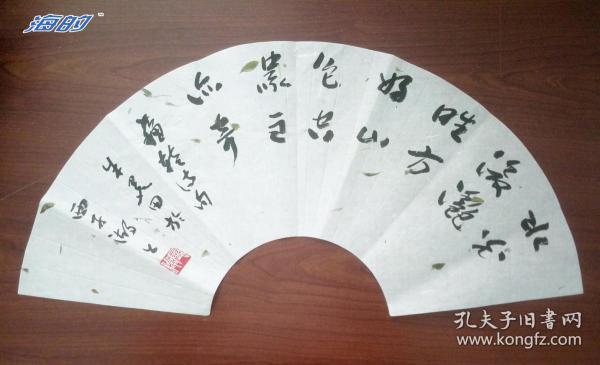 海的
水光
潋滟
晴方
好山
色空
蒙雨
亦奇
蘇轼诗句
田於
西子湖上
孔夫子旧書网
www.kongfz.com